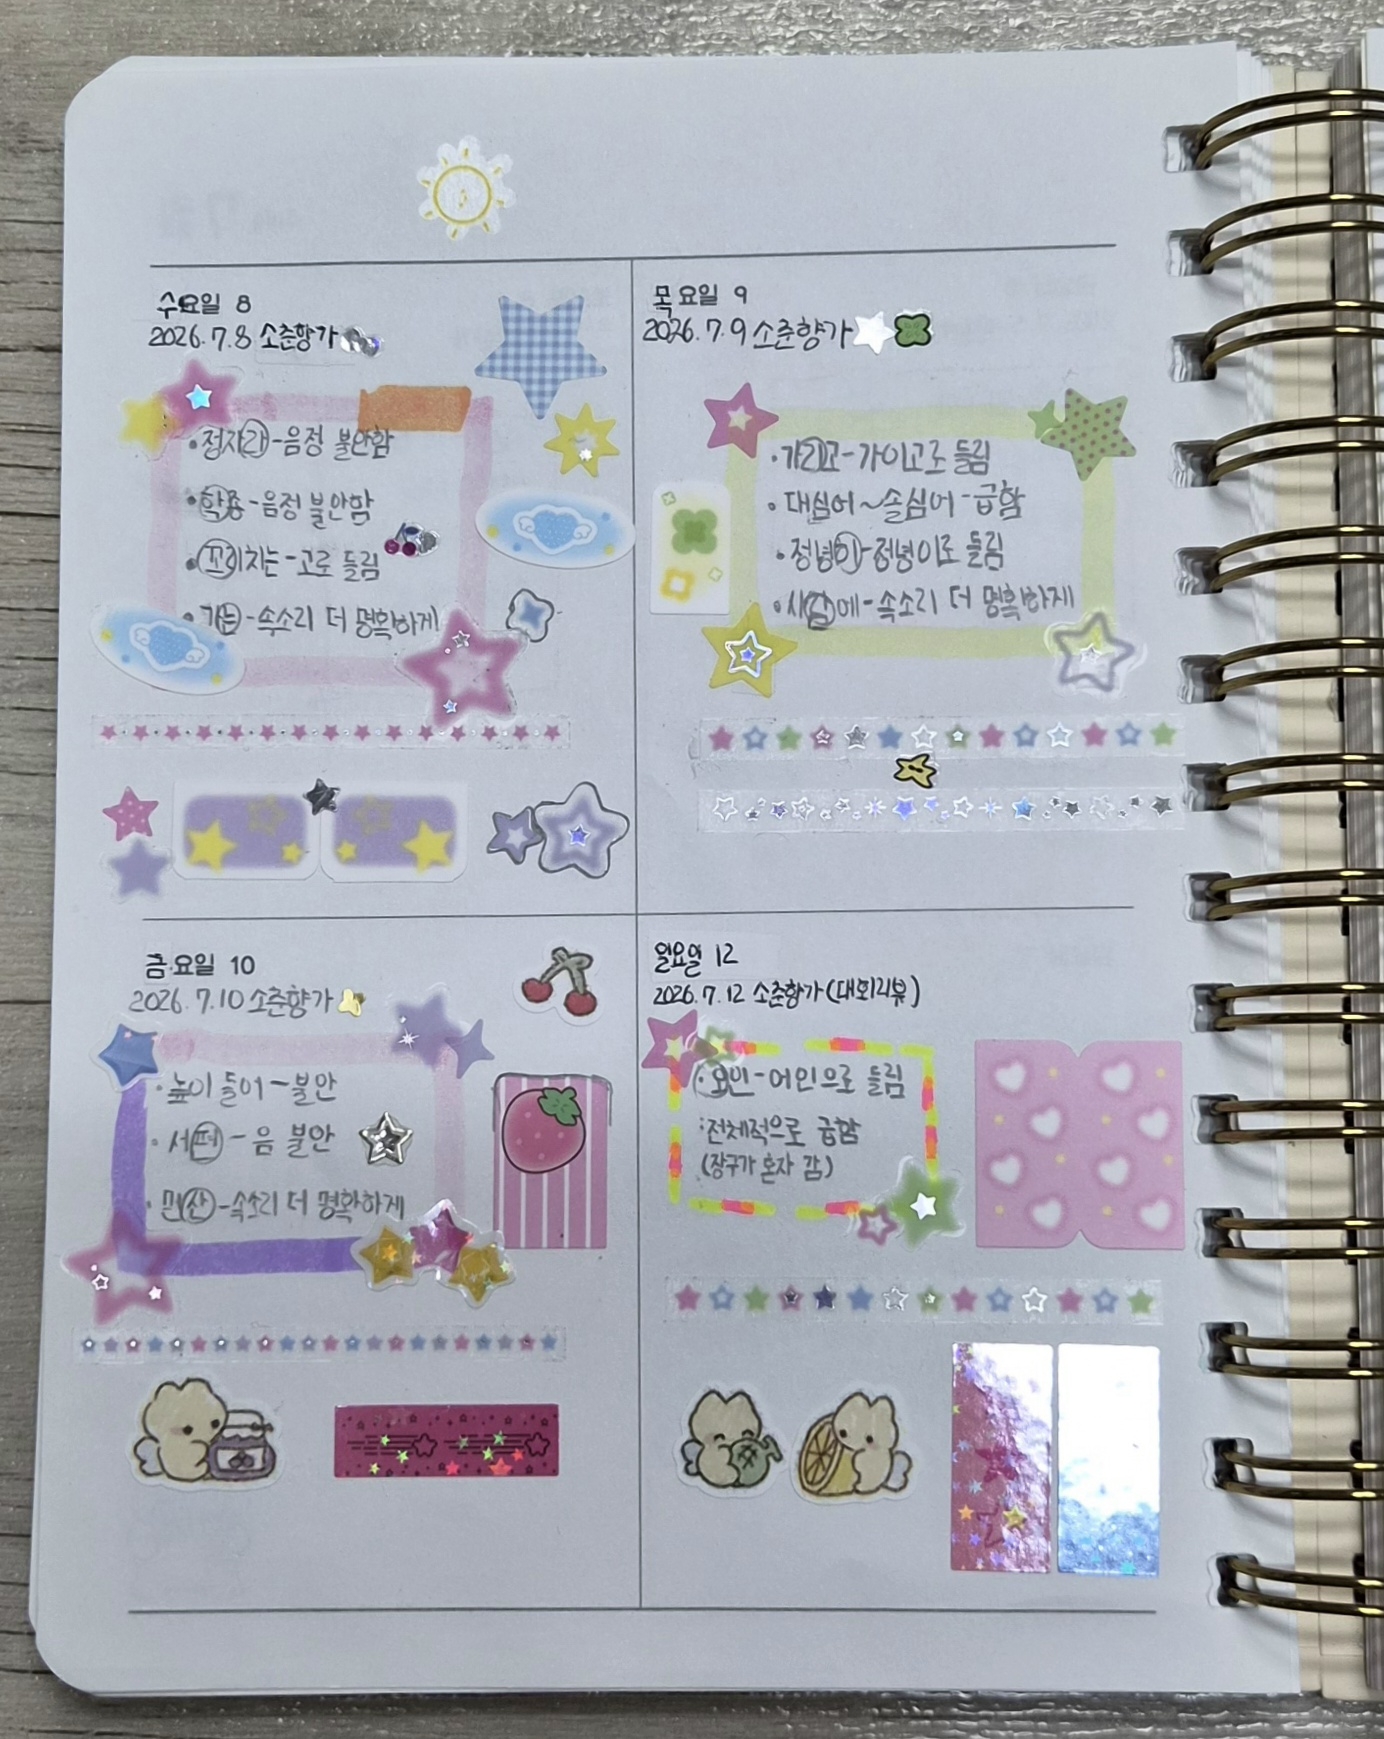 수요일 8
2026.7.8 소춘향가
• 정자라-음정 불안함
• 학용-음정 불안함
• 꼬리치는-고로 들림
• 가는-속소리 더 명확하게
목요일 9
2026.7.9 소춘향가
• 가리고-가이고로 들림
• 대심어~솔심어-급함
• 정녕히-정녕이로 들림
• 시장에-속소리 더 명확하게
금요일 10
2026.7.10 소춘향가
• 높이 들어-불안
• 서퍼-음 불안
• 먼산-속소리 더 명확하게
일요일 12
2026.7.12 소춘향가(대회리뷰)
• 요인-어인으로 들림
: 전체적으로 급함
(장구가 혼자 감)